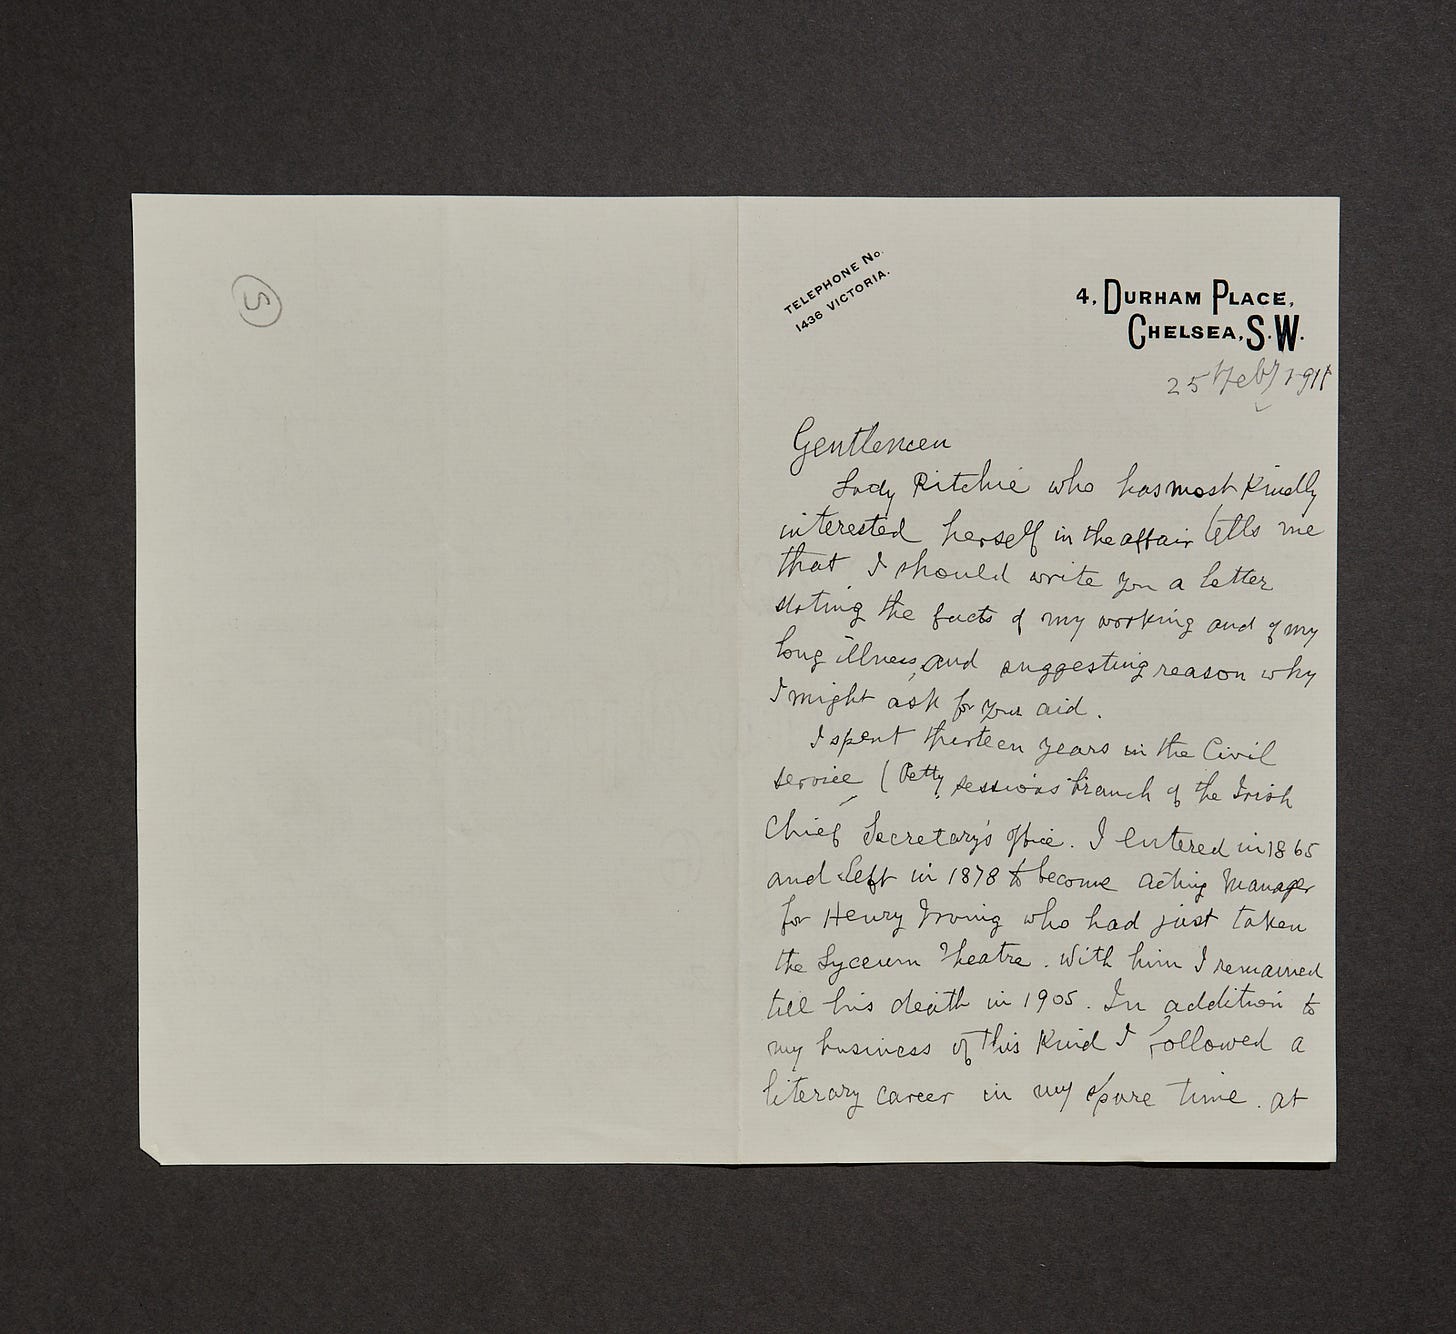 5
TELEPHONE No.
1436 VICTORIA.
4, DURHAM PLACE,
CHELSEA, S.W.
25 Feby 1911
Gentlemen
Lady Ritchie who has most kindly
interested herself in the affair tells me
that I should write you a letter
stating the facts of my working and of my
long illness, and suggesting reason why
I might ask for your aid.
I spent thirteen years in the Civil
service (Petty sessions branch of the Irish
Chief Secretary's office. I entered in 1865
and left in 1878 to become acting manager
for Henry Irving who had just taken
the Lyceum Theatre. With him I remained
till his death in 1905. In addition to
my business of this kind I followed a
literary career in my spare time. at